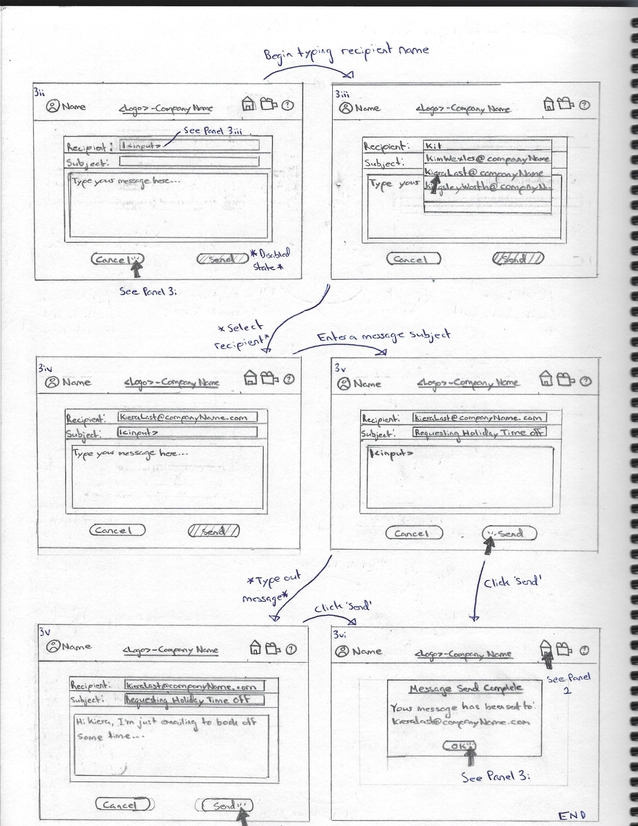 Begin typing recipient name
3ii
Name
<Logo>-Company Name
?
See Panel 3iii
Recipient: I<input>
Subject:
Type your message here...
Cancel
Send
*Disabled
State*
See Panel 3i
3iii
Name
<Logo>-Company Name
?
Recipient: Ki|
KimWexler@companyName
Subject:
KieraLast@companyName
Type your
KingsleyWorth@companyN..
Cancel
Send
*Select
recipient*
Enter a message subject
3iv
Name
<Logo>-Company Name
?
Recipient: KieraLast@companyName.com
Subject: I<input>
Type your message here...
Cancel
Send
3v
Name
<Logo>-Company Name
?
Recipient: KieraLast@companyName.com
Subject: Requesting Holiday Time off
I<input>
Cancel
Send
*Type out
message*
Click 'Send'
Click 'Send'
3v
Name
<Logo>-Company Name
?
Recipient: KieraLast@companyName.com
Subject: Requesting Holiday Time Off
Hi Kiera, I'm just emailing to book off
some time...
Cancel
Send
3vi
Name
<Logo>-Company Name
?
See Panel
2
Message Send Complete
Your message has been sent to:
KieraLast@companyName.com
OK
See Panel 3i
END